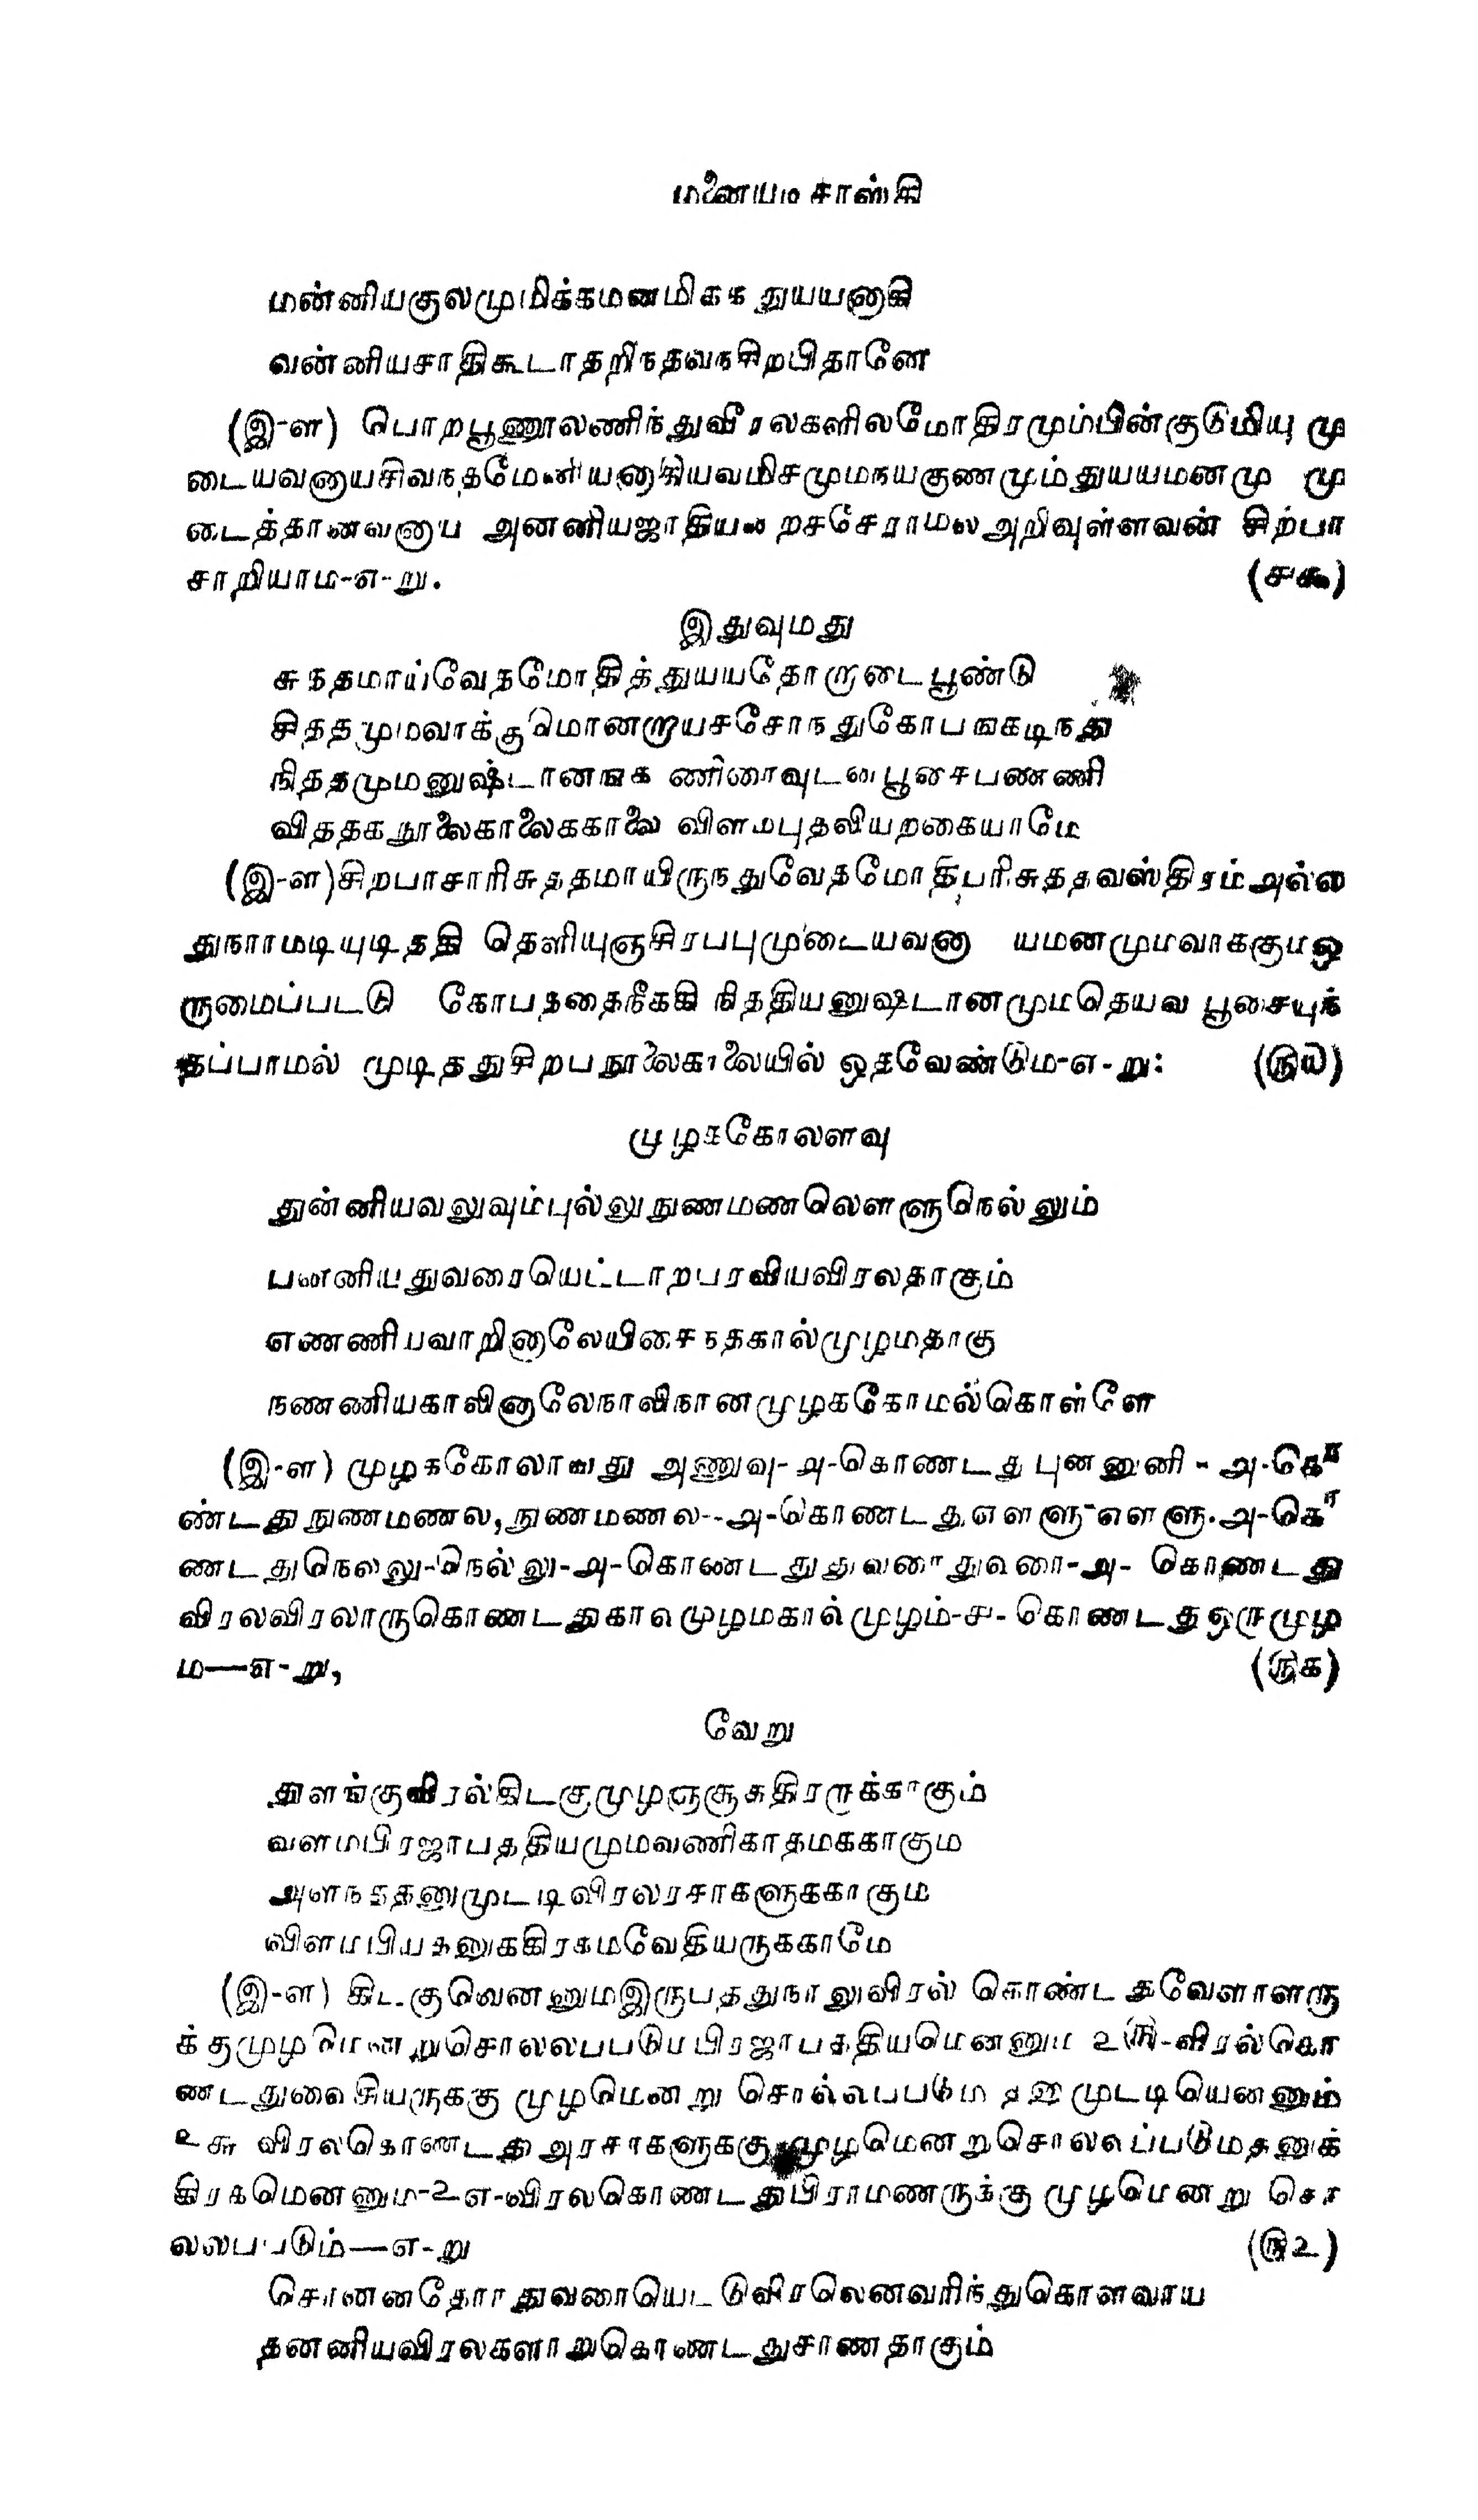 மனையடி சாஸ்தி
மன்னியகுலமுமிக்கமனமிகக துயயனாகி
வன்னியசாதிகூடாதறிந்தவநசிறபிதானே
(இ-ள) பொறபூணூலணிந்துவிரலகளிலமோதிரமும்பின்குடுமியு மு
டையவனாயசிவநதமேனியனாகியவமிசமுமநயகுணமும்துயயமணமு மு
டைத்தானவனாய அனனியஜாதியல றசசேராமல அறிவுள்ளவன் சிற்பா
சாறியாம-எ-று. (சகூ)
இதுவுமது
சுநதமாய்வேநமோதித்துயயதோருடைபூண்டு
சிததமுமவாக்குமொனறாயசசோநதுகோபஙகடிநது
நிததமுமனுஷ்டானஙக ணிறைவுடன பூசைபணணி
விததகநூலைகாலைககாலை விளமபுதலியறகையாமே
(இ-ள)சிறபாசாரிசுததமாயிருநதுவேதமோதிபரிசுததவஸ்திரம்அல்ல
துநாாமடியுடிததி தெளியுஞசிரபபுமுடையவனா யமனமுமவாககுமஒ
ருமைப்படடு கோபததைநீககி நிததியனுஷடானமுமதெயவ பூசையுந்
தப்பாமல் முடிததுசிறபநூலைகாலையில் ஒதவேண்டும-எ-று: (ரு௰)
முழககோலளவு
துன்னியவலுவும்புல்லுநுணமணலெளளுநெல்லும்
பனனியதுவரையெட்டாறபரவியவிரலதாகும்
எணணியவாறினாலேயிசைநதகால்முழமதாகு
நணணியகாலினாலேநாலிநானமுழககோமல்கொள்ளே
(இ-ள) முழககோலாவது அணுவு-அ-கொணடது புனனுனி - அ-கொ
ண்டது நுணமணல, நுணமணல--அ-கொணடதுஎளளு-எளளு.அ-கொ
ணடதுநெலலு-நெல்லு-அ-கொணடதுதுவரை துவரை-அ- கொணடது
விரலவிரலாருகொணடதுகாலமுழமகால்முழம்-ச- கொணடதுஒருமுழ
ம—எ-று, (ருக)
வேறு
துளங்குவிரல்கிடகுமுழஞசூசுதிரருக்காகும்
வளமபிரஜாபததியமுமவணிகாதமககாகும
அளநததனுமுடடிவிரலரசாகளுககாகும
விளமபியதனுககிரகமவேதியருககாமே
(இ-ள) கிடகுவெனனுமஇருபததுநாலுவிரல் கொண்டதவேளாளரு
க்குமுழமெனறுசொலலபபடுமபிரஜாபததியமெனனும ௨ரு-விரல்கொ
ணடதுவைசியருககு முழமெனறு சொலலபபடும தநு முடடியெனனும்
௨சு விரலகொணடதுஅரசாகளுககு முழமெனறுசொலலப்படுமதனுக்
கிரகமெனனும-௨எ-விரலகொணடதுபிராமணருக்கு முழமெனறு சொ
லலபபடும்—எ-று (ரு௨)
சொனனதோாதுவரையெடடுவிரலெனவரிந்துகொளவாய
தனனியவிரலகளாறுகொணடதுசாணதாகும்